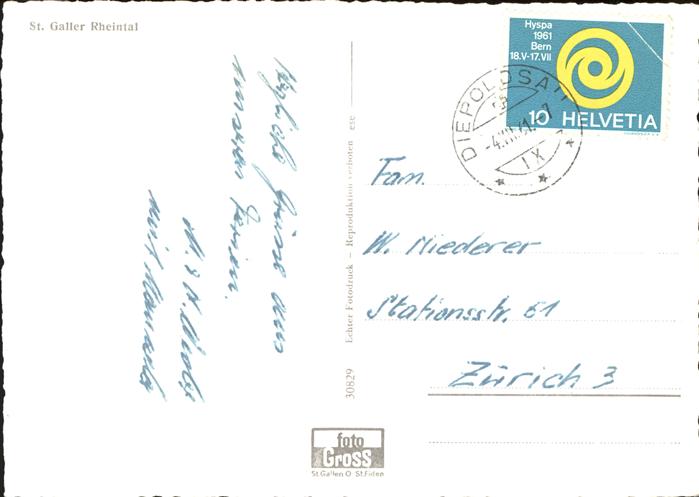 St. Galler Rheintal
Hyspa
1961
Bern
18.V-17.VII
10 HELVETIA
DIEPOLDSAU
Herzliche Grüsse aus
unseren Ferien.
Fam.
W. Niederer
Stationsstr. 61
Zürich 3
30829 Echter Fotodruck – Reproduktion verboten ese
foto
Gross
St.Gallen O St.Fiden